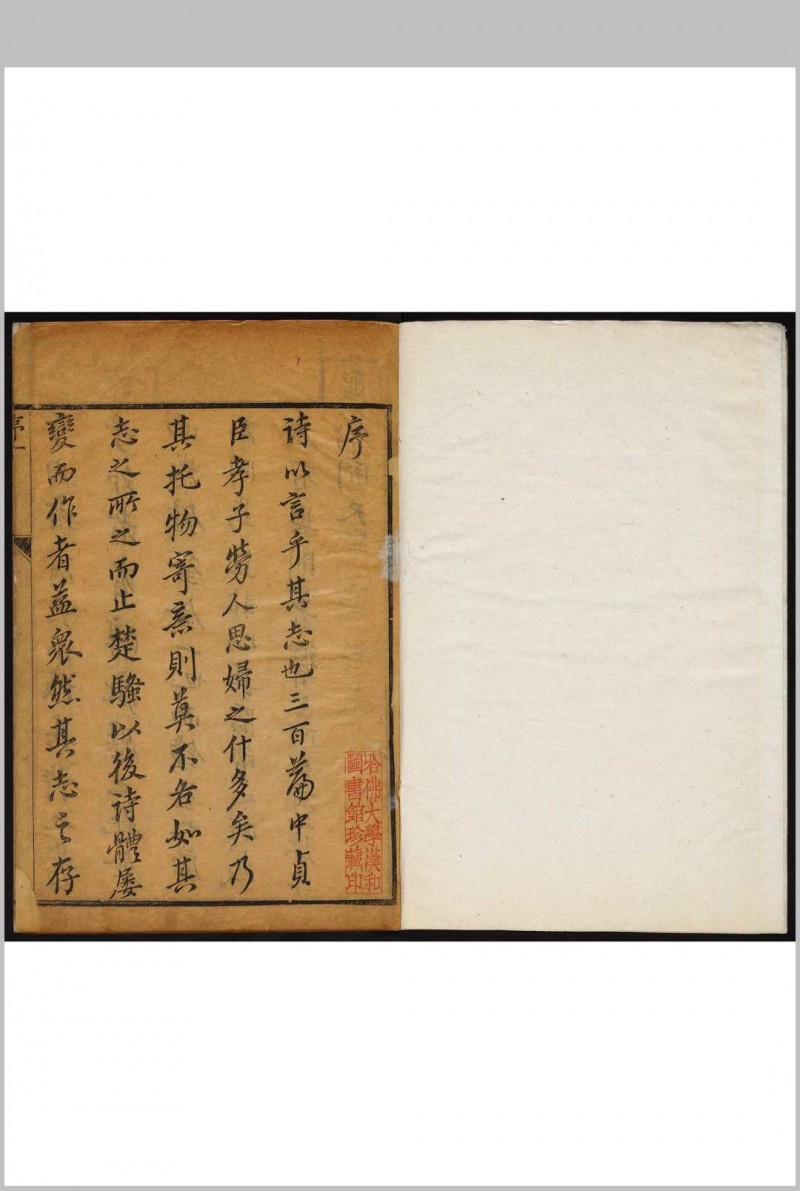 序
詩以言乎其志也三百篇中貞
臣孝子勞人思婦之什多矣乃
其托物寄意則莫不各如其
志之所之而止楚騷以後詩體屡
變而作者益衆然其志之存
序一
哈佛大學漢和
圖書館珍藏印